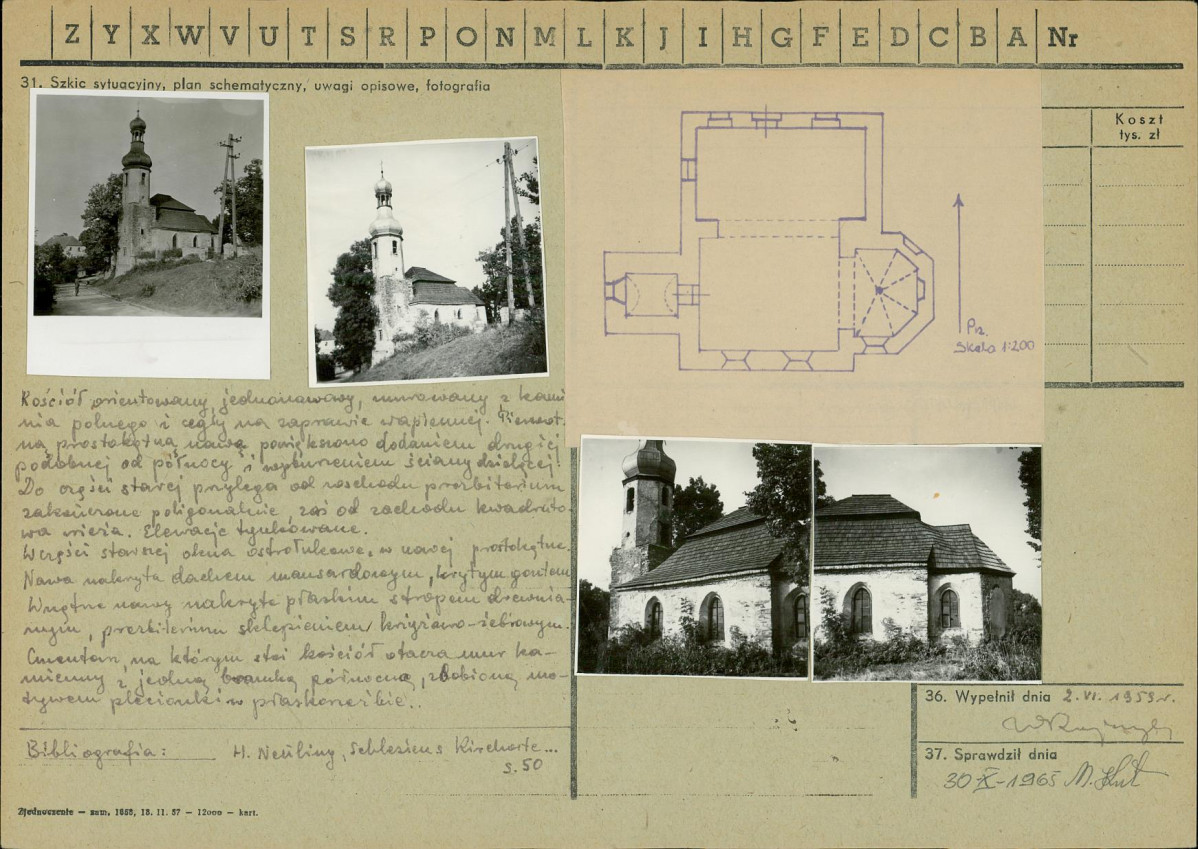 Z Y X W V U T S R P O N M L K J I H G F E D C B A Nr
31. Szkic sytuacyjny, plan schematyczny, uwagi opisowe, fotografia
Koszt
tys. zł
Skala 1:200
Kościół orientowany, jednonawowy, murowany z kamie
nia polnego i cegły na zaprawie wapiennej. Pierwot.
ną prostokątną nawę powiększono dodaniem drugiej
podobnej od północy i wyburzeniem ściany dzielącej.
Do części starej przylega od wschodu prezbiterium
zakończone poligonalnie, zaś od zachodu kwadrato-
wa wieża. Elewacje tynkowane.
W części starszej okna ostrołukowe, w nowej prostokątne.
Nawa nakryta dachem mansardowym, krytym gontem
Wnętrze nawy nakryte płaskim stropem drewnia-
nym, prezbiterium sklepieniem krzyżowo-żebrowym.
Cmentarz, na którym stoi kościół otacza mur ka-
mienny z jedną bramką północną, zdobioną mo-
tywem plecionki w płaskorzeźbie..
Bibliografia: H. Neuling, Schlesiens Kirchorte...
s. 50
36. Wypełnił dnia 2. VI. 1959 r.
37. Sprawdził dnia
30 X - 1965
Zjednoczenie — zam. 1653, 13. 11. 57 — 12000 — kart.